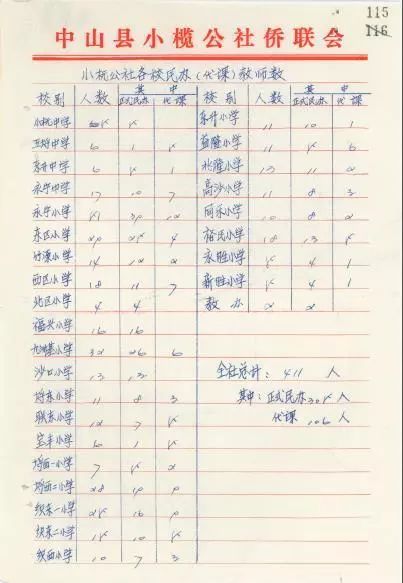 115
116
中山县小榄公社侨联会
小杬公社各校民办(代课)教师数
校别 人数 其中 校别 人数 其中
正式民办 代课 正式民办 代课
小杬中学 5 东升小学 11 10 1
6 1 5 益隆小学 11 5 6
东升中学 6 5 1 13 11 2
永宁中学 17 10 7 高沙小学 11 8 3
永宁小学 12 同乐小学 10 8 2
东区小学 29 25 4 裕民小学 18 13 5
竹源小学 14 12 2 永胜小学 5 4 1
西区小学 18 11 7 新胜小学 5 4 1
北区小学 4 4 教办 2 2
福兴小学 16 16
九洲基小学 32 26 6
沙口小学 13 13 全社总计: 411 人
埒东小学 11 8 3 其中: 正式民办 305 人
联东小学 12 7 5 代课 106 人
宝丰小学 6 1 5
埒西一小学 7 5 2
埒西二小学 28 19 9
绩东一小学 25 16 9
绩东二小学 15 10 5
绩西小学 10 7 3